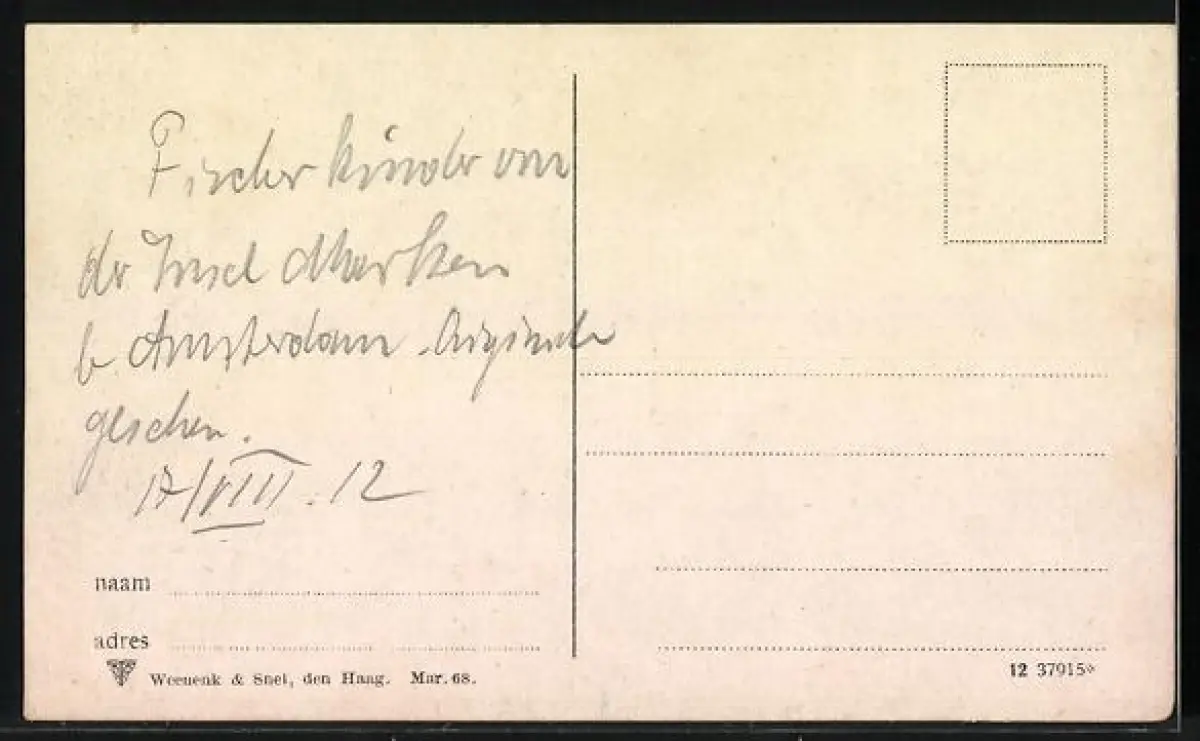 Fischerkinder von
der Insel Marken
b. Amsterdam. Originale
gesehen.
17/VIII. 12
naam
adres
Weenenk & Snel, den Haag. Mar. 68.
12 37915*